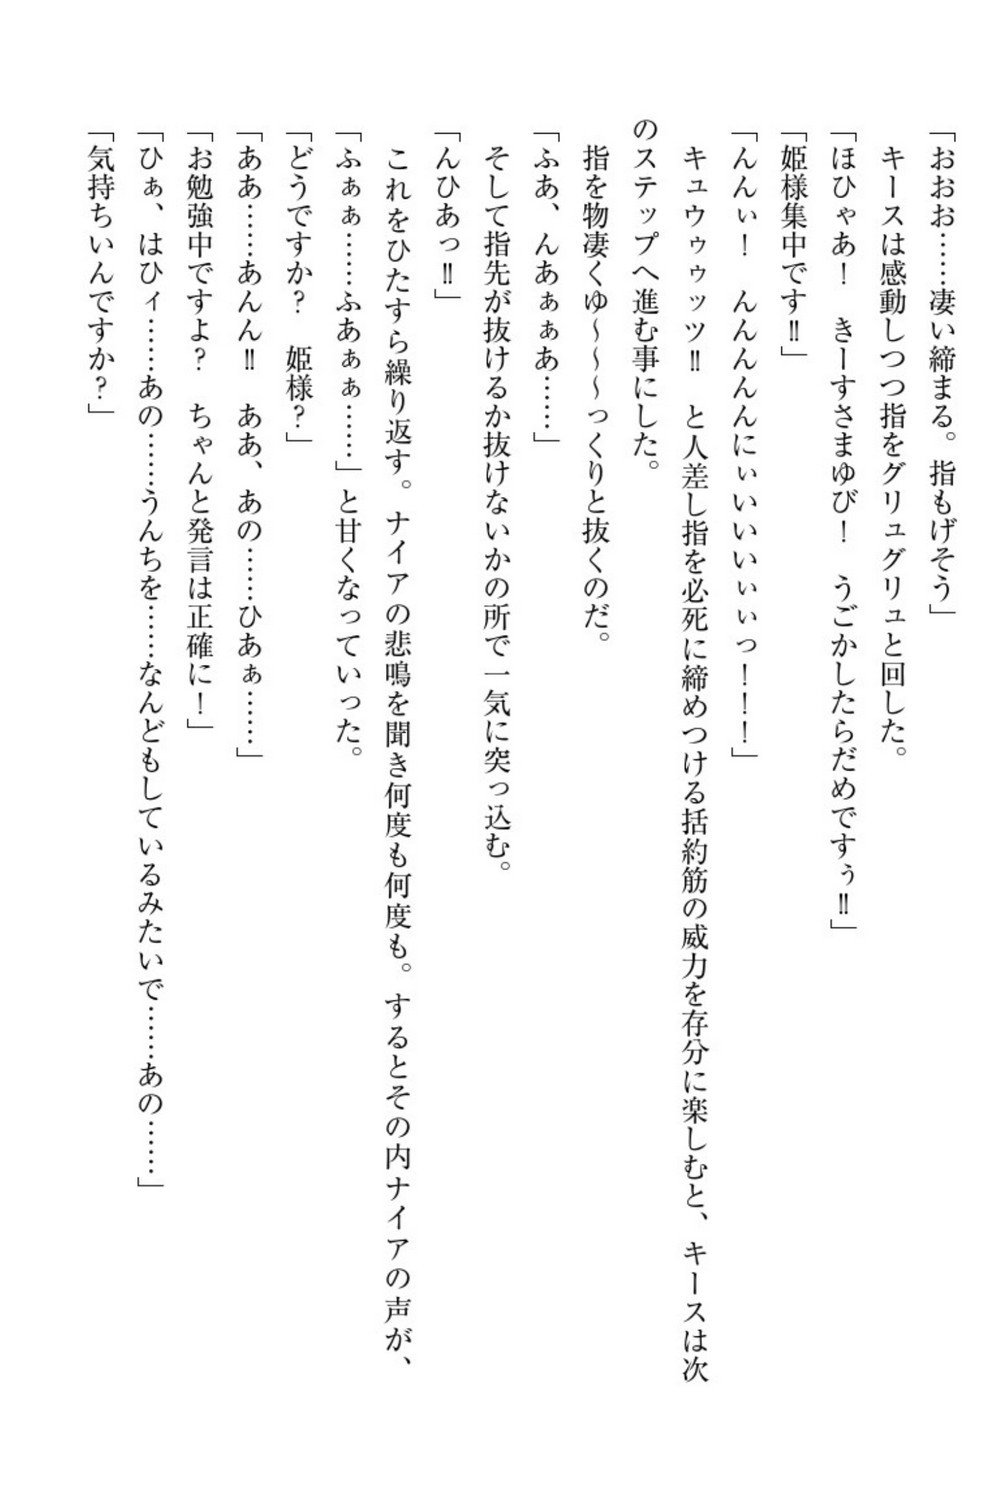 「おおお……凄い締まる。指もげそう」
キースは感動しつつ指をグリュグリュと回した。
「ほひゃあ！　きーすさまゆび！　うごかしたらだめですぅ‼」
「姫様集中です‼」
「んんぃ！　んんんんんにぃいいいいぃぃっ！！！」
キュウゥゥッツ‼　と人差し指を必死に締めつける括約筋の威力を存分に楽しむと、キースは次
のステップへ進む事にした。
指を物凄くゆ～～～っくりと抜くのだ。
「ふあ、んあぁぁあ……」
そして指先が抜けるか抜けないかの所で一気に突っ込む。
「んひあっ‼」
これをひたすら繰り返す。ナイアの悲鳴を聞き何度も何度も。するとその内ナイアの声が、
「ふぁぁ……ふあぁぁ……」と甘くなっていった。
「どうですか？　姫様？」
「ああ……あんん‼　ああ、あの……ひあぁ……」
「お勉強中ですよ？　ちゃんと発言は正確に！」
「ひぁ、はひィ……あの……うんちを……なんどもしているみたいで……あの……」
「気持ちいんですか？」